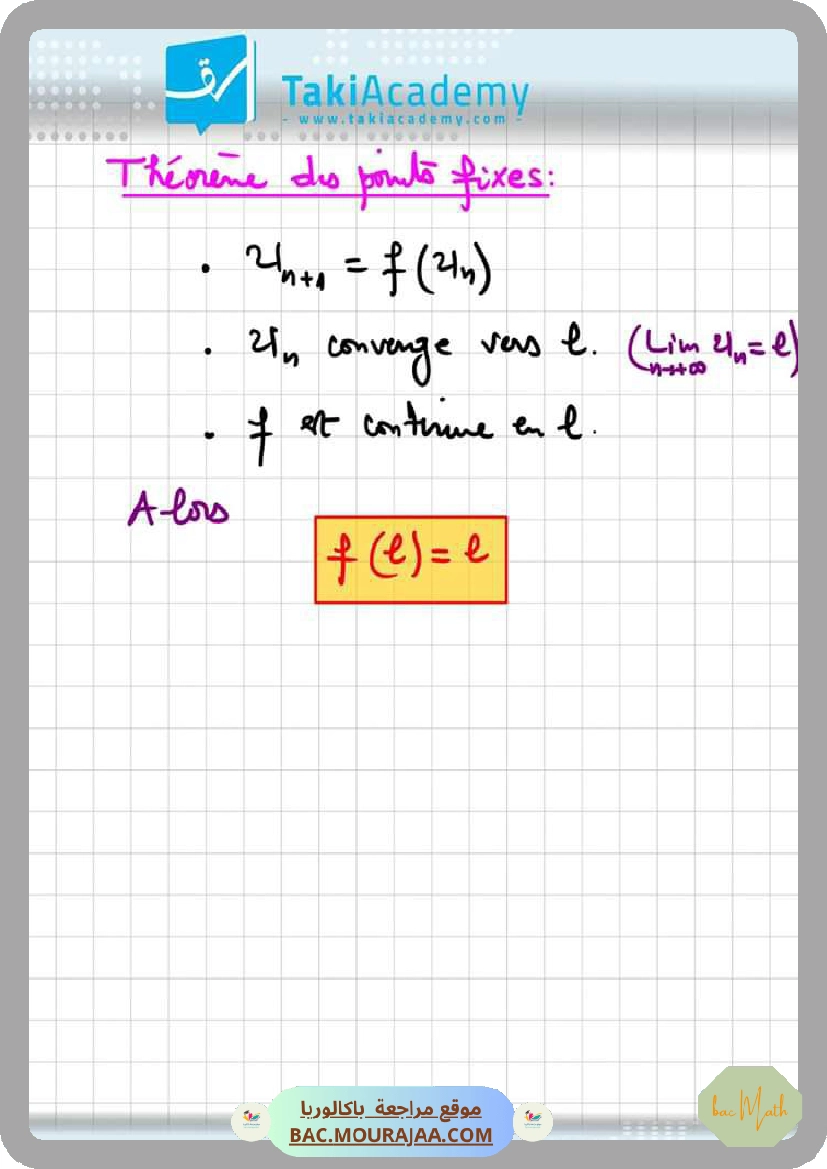 TakiAcademy
- www.takiacademy.com -
Théorème des points fixes:
. Un+1 = f(Un)
. Un converge vers l. (Lim Un = l)
n→+∞
. f est continue en l.
Alors
f(l) = l
موقع مراجعة باكالوريا
BAC.MOURAJAA.COM
bac Math